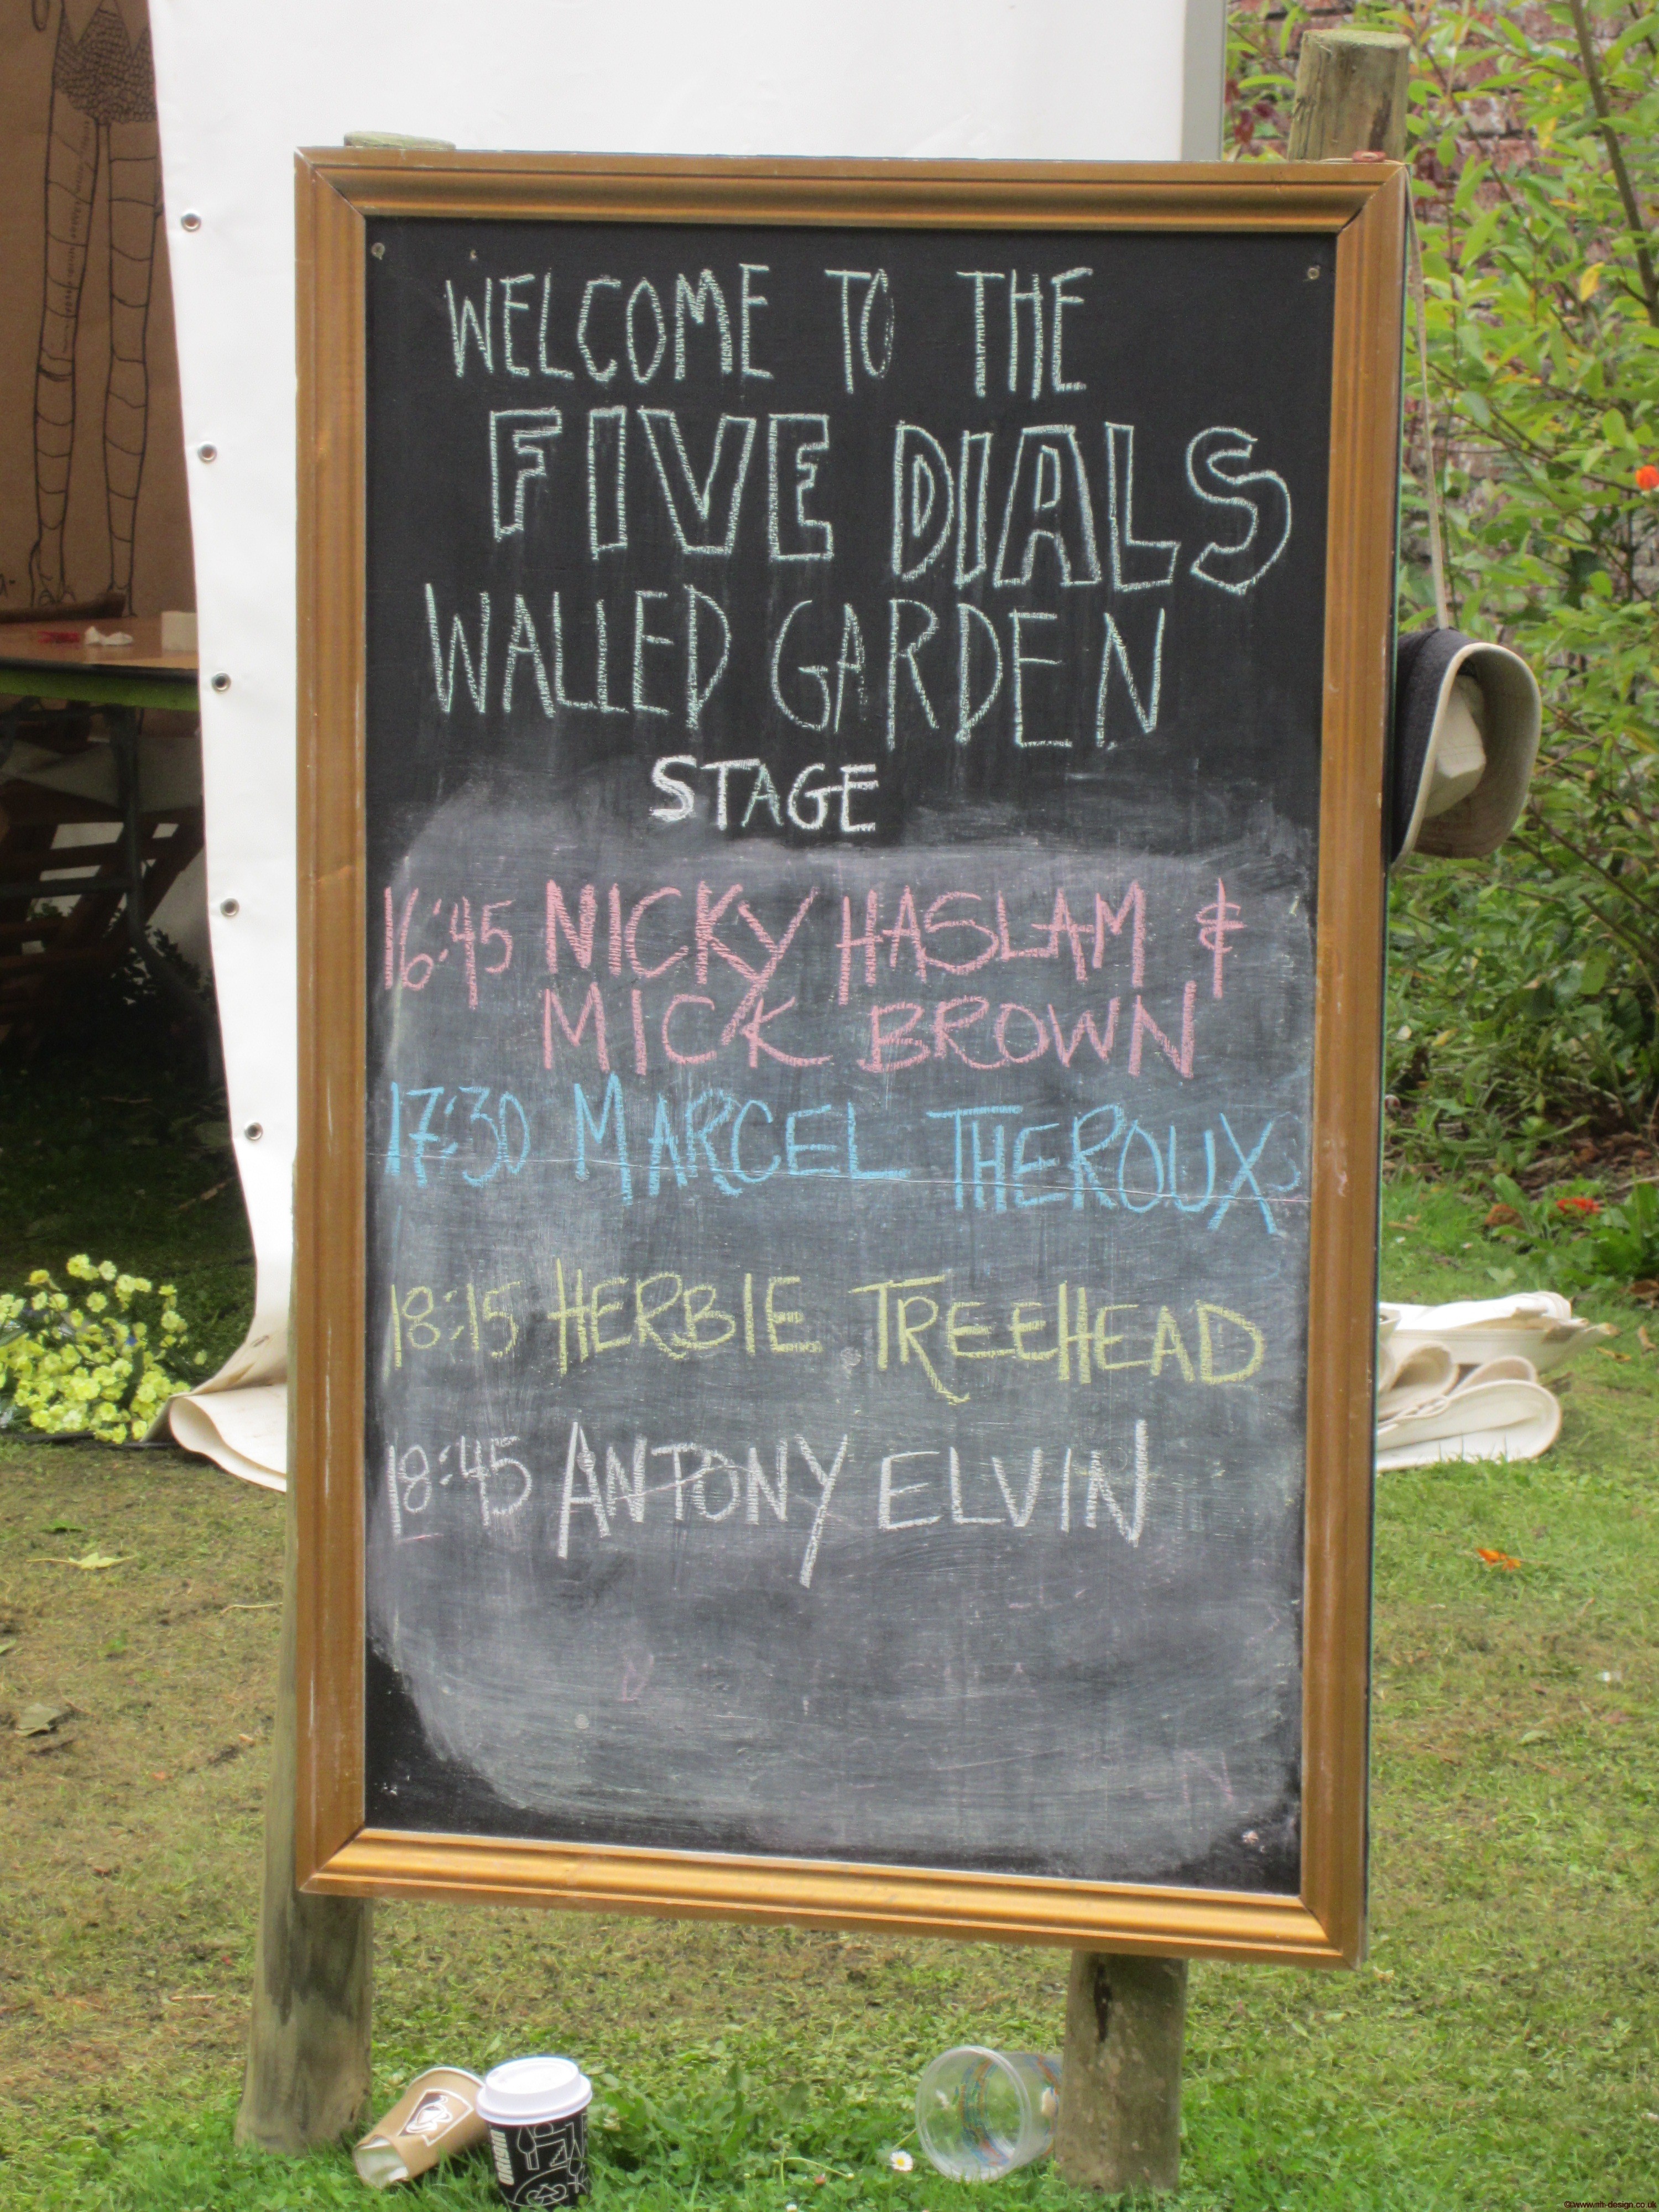 WELCOME TO THE
FIVE DIALS
WALLED GARDEN
STAGE
16:45 NICKY HASLAM &
MICK BROWN
17:30 MARCEL THEROUX
18:15 HERBIE TREEHEAD
18:45 ANTONY ELVIN
©www.rift-design.co.uk